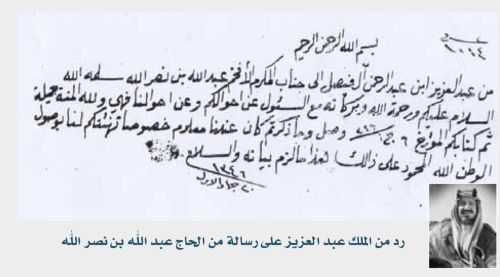 بسم الله الرحمن الرحيم
عدد
من عبد العزيز ابن عبد الرحمن آل فيصل الى جناب المكرم الأفخم عبد الله بن نصر الله سلمه الله
السلام عليكم ورحمة الله وبركاته مع السئول عن احوالكم وعن احوالنا فهي ولله المنة جميلة
ثم كتابكم المؤرخ ٦ ج وصل وما ذكرتم كان عندنا معلوم خصوصا تهنئتكم لنا بوصول
الوطن الله المحمود على ذالك هذا ما لزم بيانه والسلام
١٣٤٦
٢٠ جماد الاول
رد من الملك عبد العزيز على رسالة من الحاج عبد الله بن نصر الله